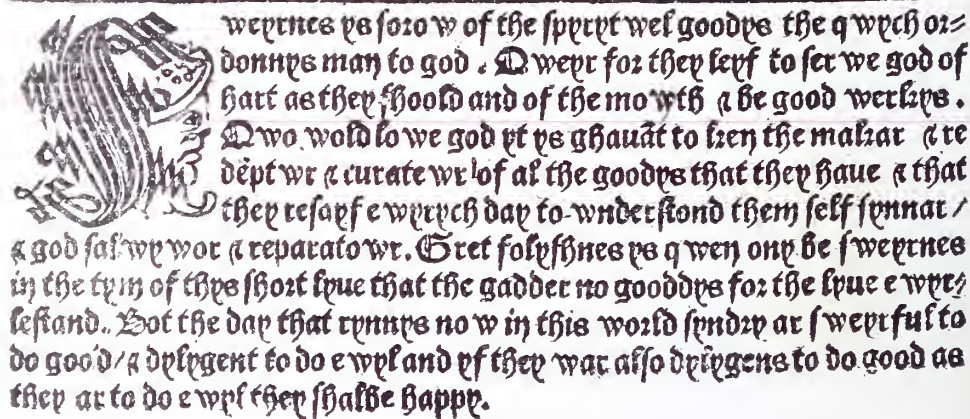 Sweyrnes ys sorow of the spyryt wel goodys the qwych or⸗
donnys man to god. Qweyr for they leyf to ser we god of
hart as they shoold and of the mowth ⁊ be good werkys.
Qwo wold lowe god yt ys ghauāt to ken the makar ⁊ re
dēpt wr ⁊ curate wr of al the goodys that they haue ⁊ that
they resayf e wyrych day to wnderstond them self synnar /
⁊ god sal wy wor ⁊ reparato wr. Gret folyshnes ys qwen ony be sweyrnes
in the tym of thys short lyue that the gadder no gooddys for the lyue e wyr⸗
lestand.. Bot the day that rynnys now in this world syndry ar sweyrful to
do good / ⁊ dylygent to do e wyl and yf they war also dylygens to do good as
they ar to do e wyl they shalbe happy.